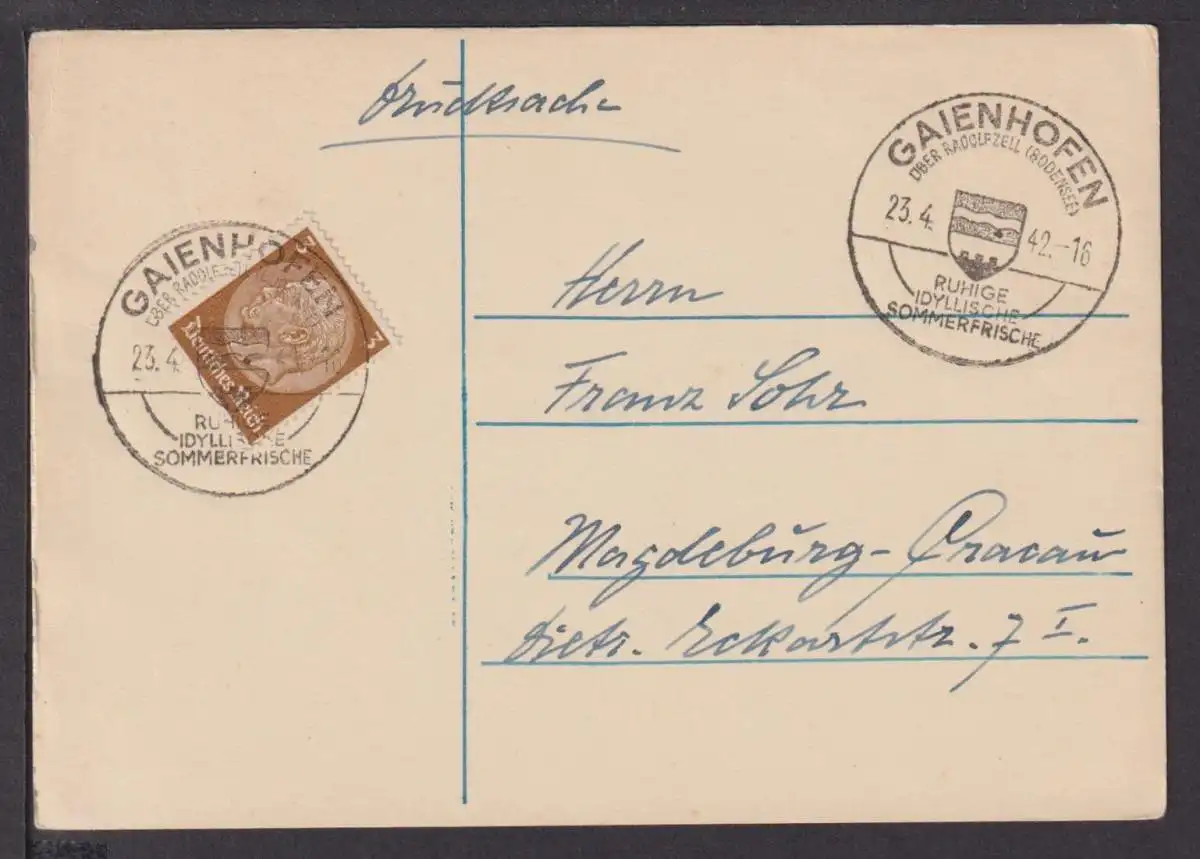 Drucksache
GAIENHOFEN
ÜBER RADOLFZELL (BODENSEE)
23.4. 42.-16
RUHIGE
IDYLLISCHE
SOMMERFRISCHE
GAIENHOFEN
ÜBER RADOLFZELL
23.4.
RUHIGE
IDYLLISCHE
SOMMERFRISCHE
3
3
Deutsches Reich
Herrn
Franz Sohr
Magdeburg-Cracau
Dietr. Eckartstr. 7 I.